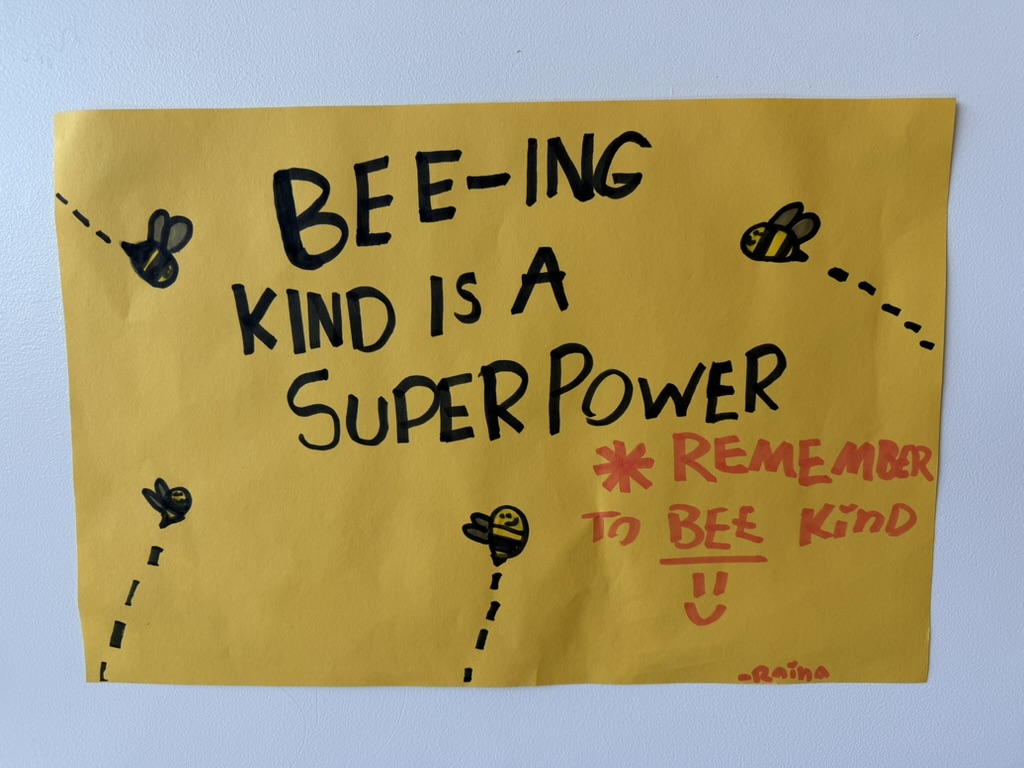 BEE-ING
KIND IS A
SUPERPOWER
* REMEMBER
TO BEE KinD
-Raina